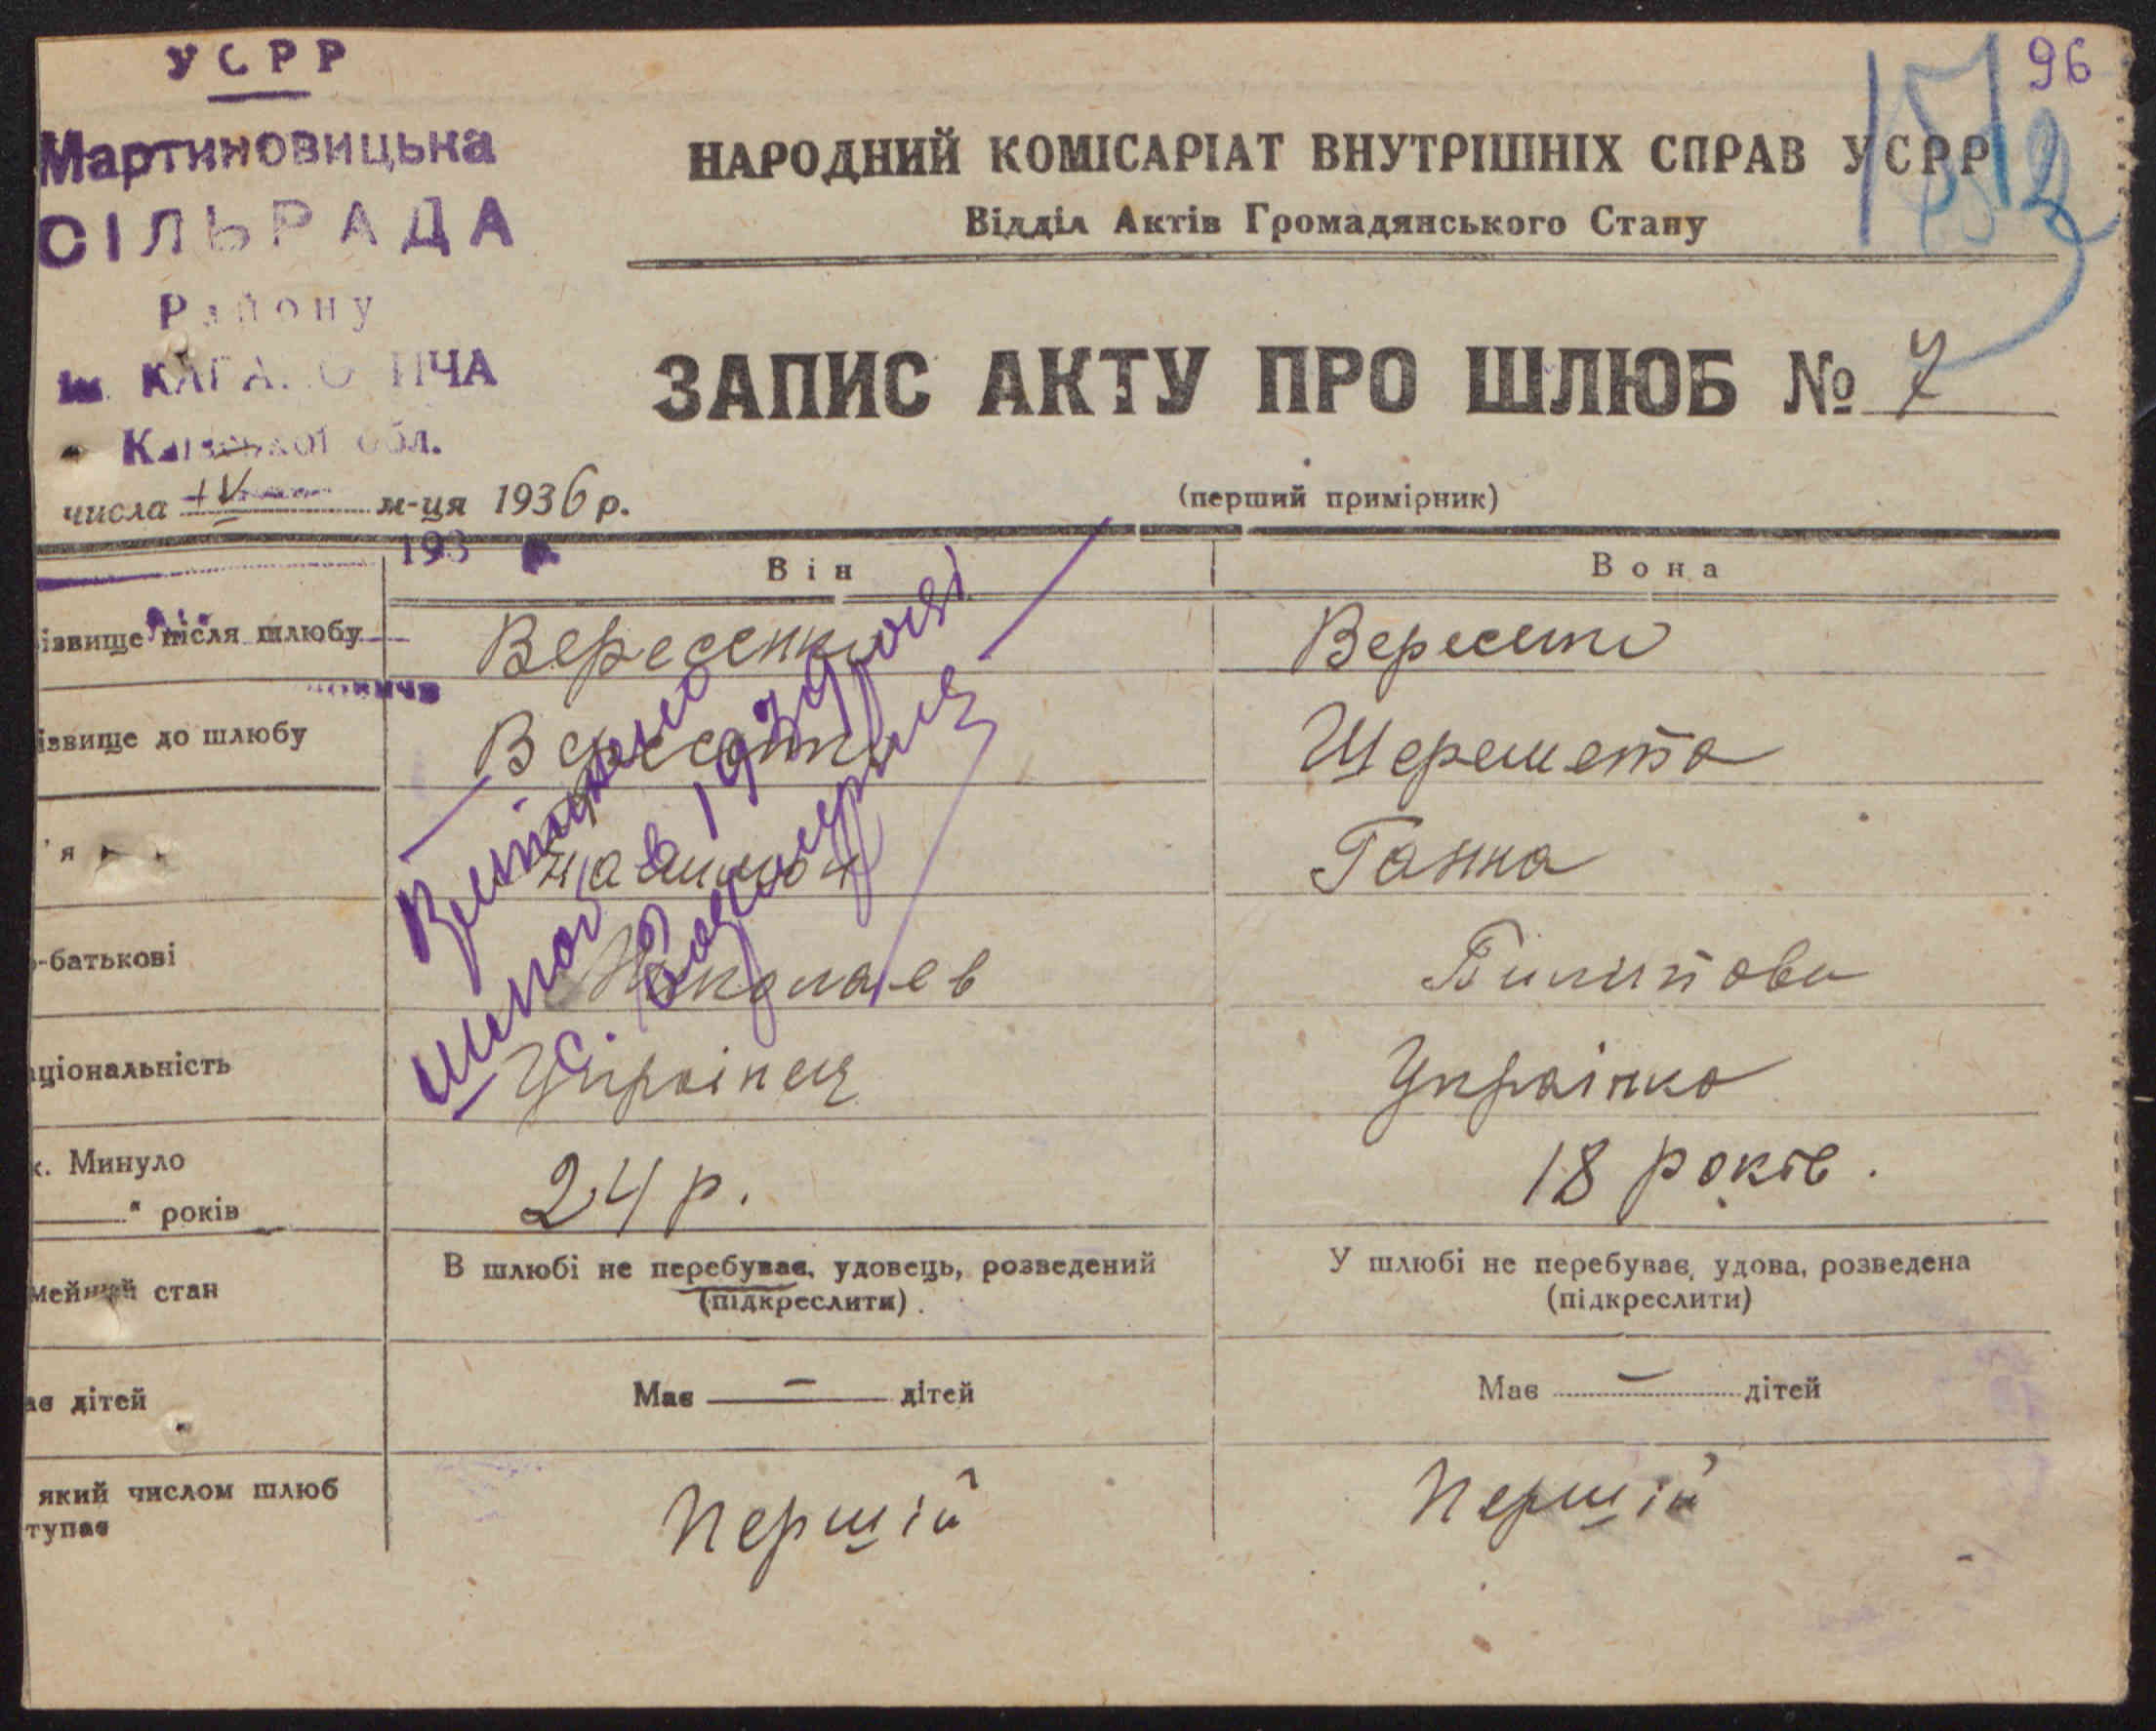 УСРР
96
Мартиновицька
СІЛЬРАДА
Району
ім. КАГАНОВИЧА
Київської обл.
НАРОДНИЙ КОМІСАРІАТ ВНУТРІШНІХ СПРАВ УСРР
Відділ Актів Громадянського Стану
ЗАПИС АКТУ ПРО ШЛЮБ № 7
числа IV м-ця 1936 р.
(перший примірник)
193 р.
Він Вона
ізвище після шлюбу Вересенко
ізвище до шлюбу Шеремета
'я Ганна
-батькові Николаев
аціональність Українец Українка
к. Минуло
" років 24 р. 18 років.
мейний стан В шлюбі не перебуває, удовець, розведений У шлюбі не перебуває, удова, розведена
(підкреслити) (підкреслити)
ає дітей Має — дітей Має — дітей
який числом шлюб
тупає Першій Першій